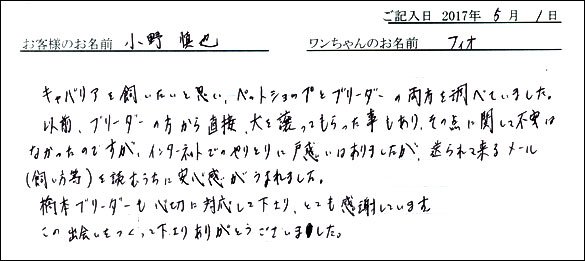 ご記入日 2017年 5月 1日
お客様のお名前 小野 慎也 ワンちゃんのお名前 フィオ
キャバリアを飼いたいと思い、ペットショップとブリーダーの両方を調べていました。
以前、ブリーダーの方から直接、犬を譲ってもらった事もあり、その点に関して不安は
なかったのですが、インターネットでのやりとりに戸惑いはありましたが、送られて来るメール
(飼い方等)を読むうちに安心感がうまれました。
橋本ブリーダーも心切に対応して下さり、とても感謝しています
この出会いをつくって下さりありがとうございました。